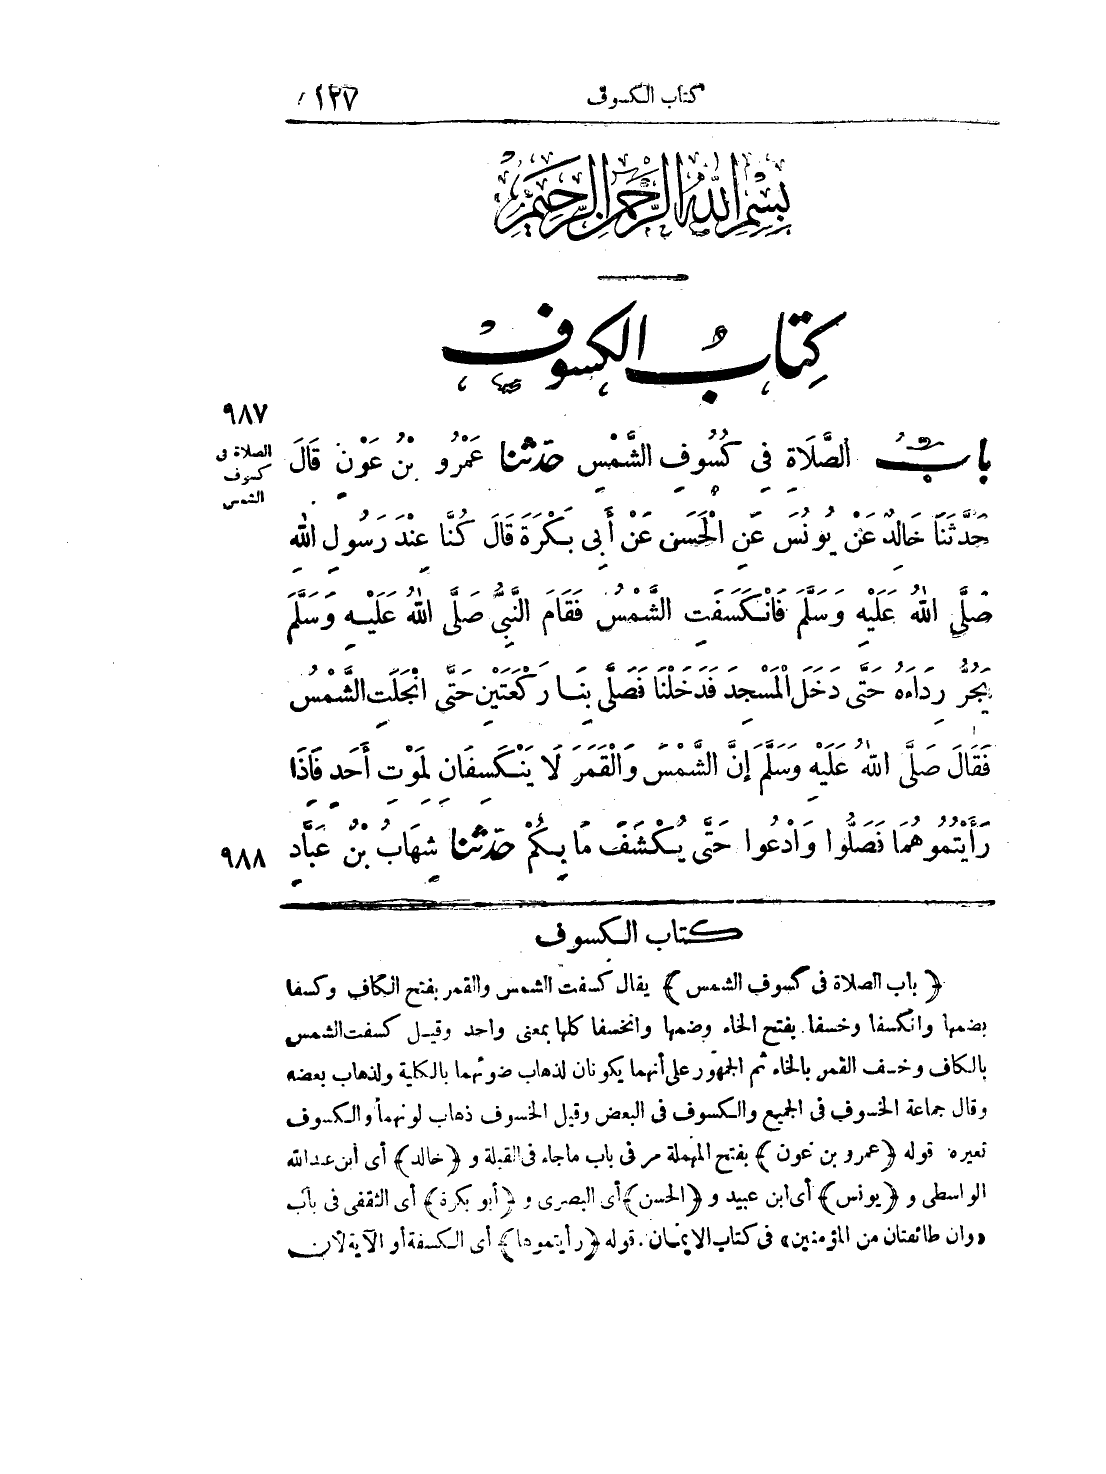 كتاب الكسوف ١٢٧
بِسْمِ اللهِ الرَّحْمٰنِ الرَّحِيمِ
كِتَابُ الكسوف
٩٨٧
الصلاة في
كسوف
الشمس
بابُ الصَّلَاةِ فِي كُسُوفِ الشَّمْسِ حدثنا عَمْرُو بْنُ عَوْنٍ قَالَ
حَدَّثَنَا خَالِدٌ عَنْ يُونُسَ عَنِ الْحَسَنِ عَنْ أَبِي بَكْرَةَ قَالَ كُنَّا عِنْدَ رَسُولِ اللهِ
صَلَّى اللهُ عَلَيْهِ وَسَلَّمَ فَانْكَسَفَتِ الشَّمْسُ فَقَامَ النَّبِيُّ صَلَّى اللهُ عَلَيْهِ وَسَلَّمَ
يَجُرُّ رِدَاءَهُ حَتَّى دَخَلَ الْمَسْجِدَ فَدَخَلْنَا فَصَلَّى بِنَا رَكْعَتَيْنِ حَتَّى انْجَلَتِ الشَّمْسُ
فَقَالَ صَلَّى اللهُ عَلَيْهِ وَسَلَّمَ إِنَّ الشَّمْسَ وَالْقَمَرَ لَا يَنْكَسِفَانِ لِمَوْتِ أَحَدٍ فَإِذَا
رَأَيْتُمُوهُمَا فَصَلُّوا وَادْعُوا حَتَّى يُكْشَفَ مَا بِكُمْ حدثنا شِهَابُ بْنُ عَبَّادٍ
٩٨٨
كتاب الكسوف
﴿ باب الصلاة في كسوف الشمس ﴾ يقال كسفت الشمس والقمر بفتح الكاف وكسفا
بضمها وانكسفا وخسفا بفتح الخاء وضمها وانخسفا كلها بمعنى واحد وقيل كسفت الشمس
بالكاف وخسف القمر بالخاء ثم الجمهور على أنهما يكونان لذهاب ضوئهما بالكلية ولذهاب بعضه
وقال جماعة الخسوف في الجميع والكسوف في البعض وقيل الخسوف ذهاب لونهما والكسوف
تغيره. قوله ﴿عمرو بن عون﴾ بفتح المهملة مر في باب ماجاء في القبلة و ﴿خالد﴾ أى ابن عبد الله
الواسطى و ﴿يونس﴾ أى ابن عبيد و ﴿الحسن﴾ أى البصرى و ﴿أبو بكرة﴾ أى الثقفى في باب
«وان طائفتان من المؤمنين» في كتاب الايمان. قوله ﴿رأيتموها﴾ أى الكسفة أو الآية لأن